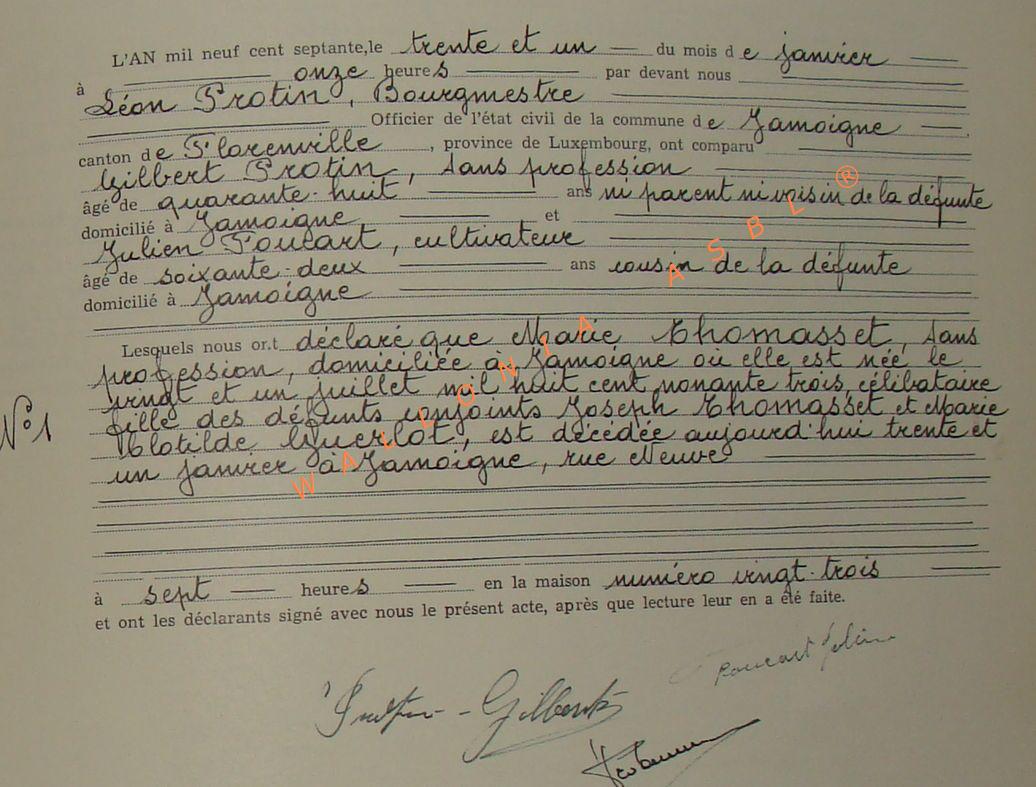 L'AN mil neuf cent septante, le trente et un du mois de janvier
à onze heures par devant nous
Léon Protin, Bourgmestre
Officier de l'état civil de la commune de Jamoigne
canton de Florenville, province de Luxembourg, ont comparu
Gilbert Protin, sans profession
âgé de quarante-huit ans ni parent ni voisin de la défunte
domicilié à Jamoigne et
Julien Foucart, cultivateur
âgé de soixante-deux ans cousin de la défunte
domicilié à Jamoigne
Lesquels nous on.t déclaré que Marie Thomasset, sans
profession, domiciliée à Jamoigne où elle est née le
vingt et un juillet mil huit cent nonante trois, célibataire
fille des défunts conjoints Joseph Thomasset et Marie
N°1
Clotilde Guerlot, est décédée aujourd'hui trente et
un janvier à Jamoigne, rue Neuve
à sept heures en la maison numéro vingt-trois
et ont les déclarants signé avec nous le présent acte, après que lecture leur en a été faite.
Foucart Julien
Protin - Gilbert
WALLONIA ASBL ®